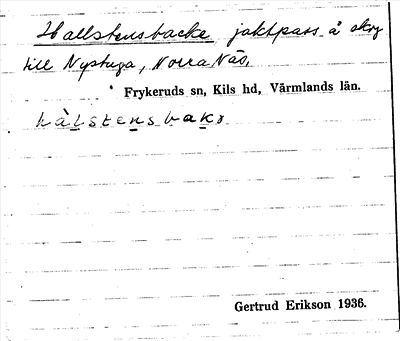 Hallstensbacke, jaktpass å skog
till Nystuga, Norra Näs,
Frykeruds sn, Kils hd, Värmlands län.
hàlstensbakə
Gertrud Erikson 1936.